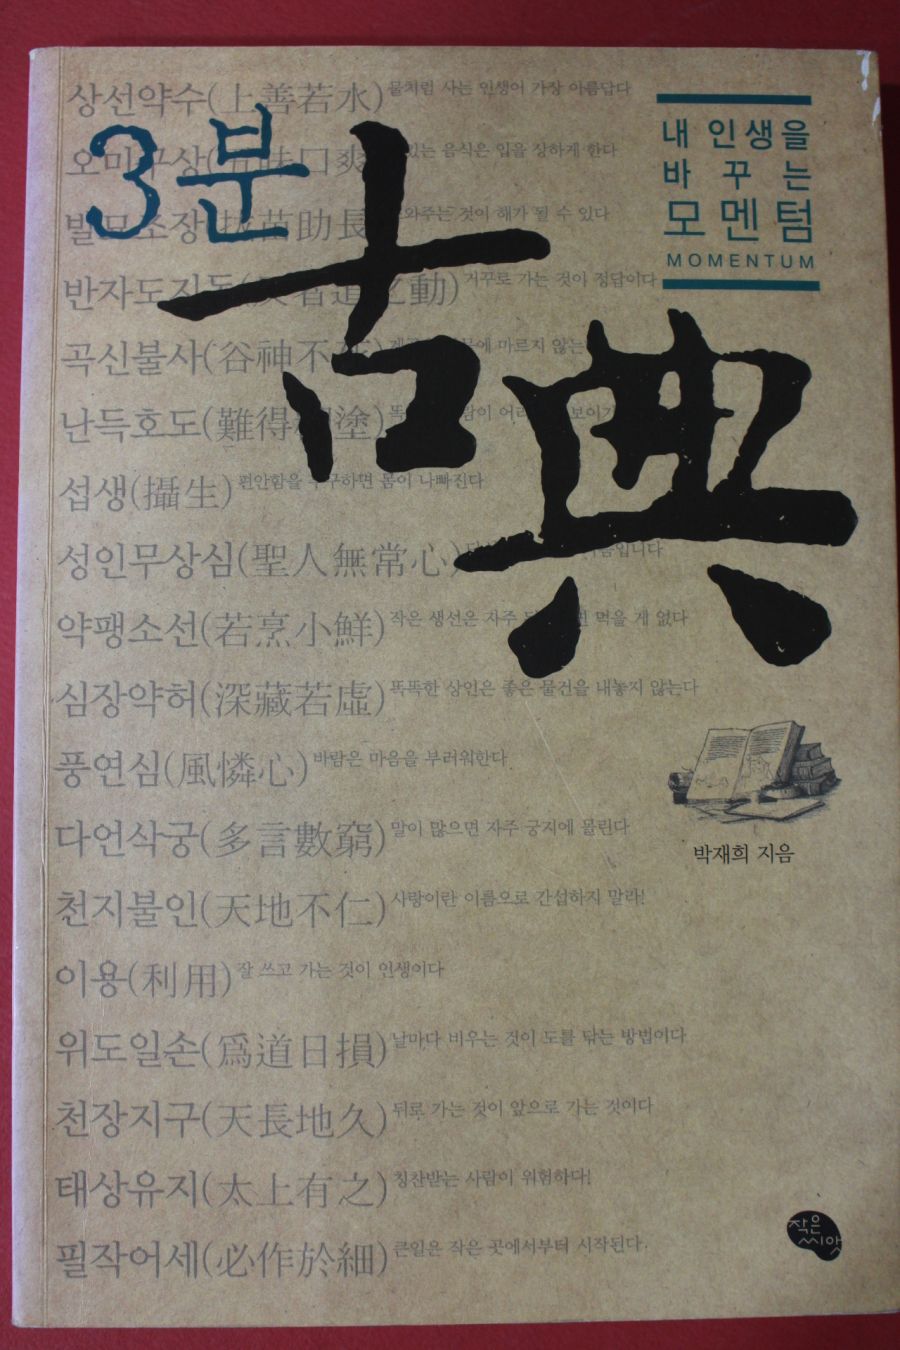 3분
古典
내 인생을
바 꾸 는
모멘텀
MOMENTUM
상선약수(上善若水) 물처럼 사는 인생이 가장 아름답다
오미구상( 口爽 있는 음식은 입을 상하게 한다
발묘조장( 苗助長 와주는 것이 해가 될 수 있다
반자도지동( 者道之動) 거꾸로 가는 것이 정답이다
곡신불사(谷神不死) 에 마르지 않는
난득호도(難得 塗) 똑 람이 어 보이기
섭생(攝生) 편안함을 추구하면 몸이 나빠진다
성인무상심(聖人無常心) 음입니다
약팽소선(若烹小鮮) 작은 생선은 자주 먹을 게 없다
심장약허(深藏若虛) 똑똑한 상인은 좋은 물건을 내놓지 않는다
풍연심(風憐心) 바람은 마음을 부러워한다
다언삭궁(多言數窮) 말이 많으면 자주 궁지에 몰린다
천지불인(天地不仁) 사랑이란 이름으로 간섭하지 말라!
이용(利用) 잘 쓰고 가는 것이 인생이다
위도일손(爲道日損) 날마다 비우는 것이 도를 닦는 방법이다
천장지구(天長地久) 뒤로 가는 것이 앞으로 가는 것이다
태상유지(太上有之) 칭찬받는 사람이 위험하다!
필작어세(必作於細) 큰일은 작은 곳에서부터 시작된다.
박재희 지음
작은
씨앗